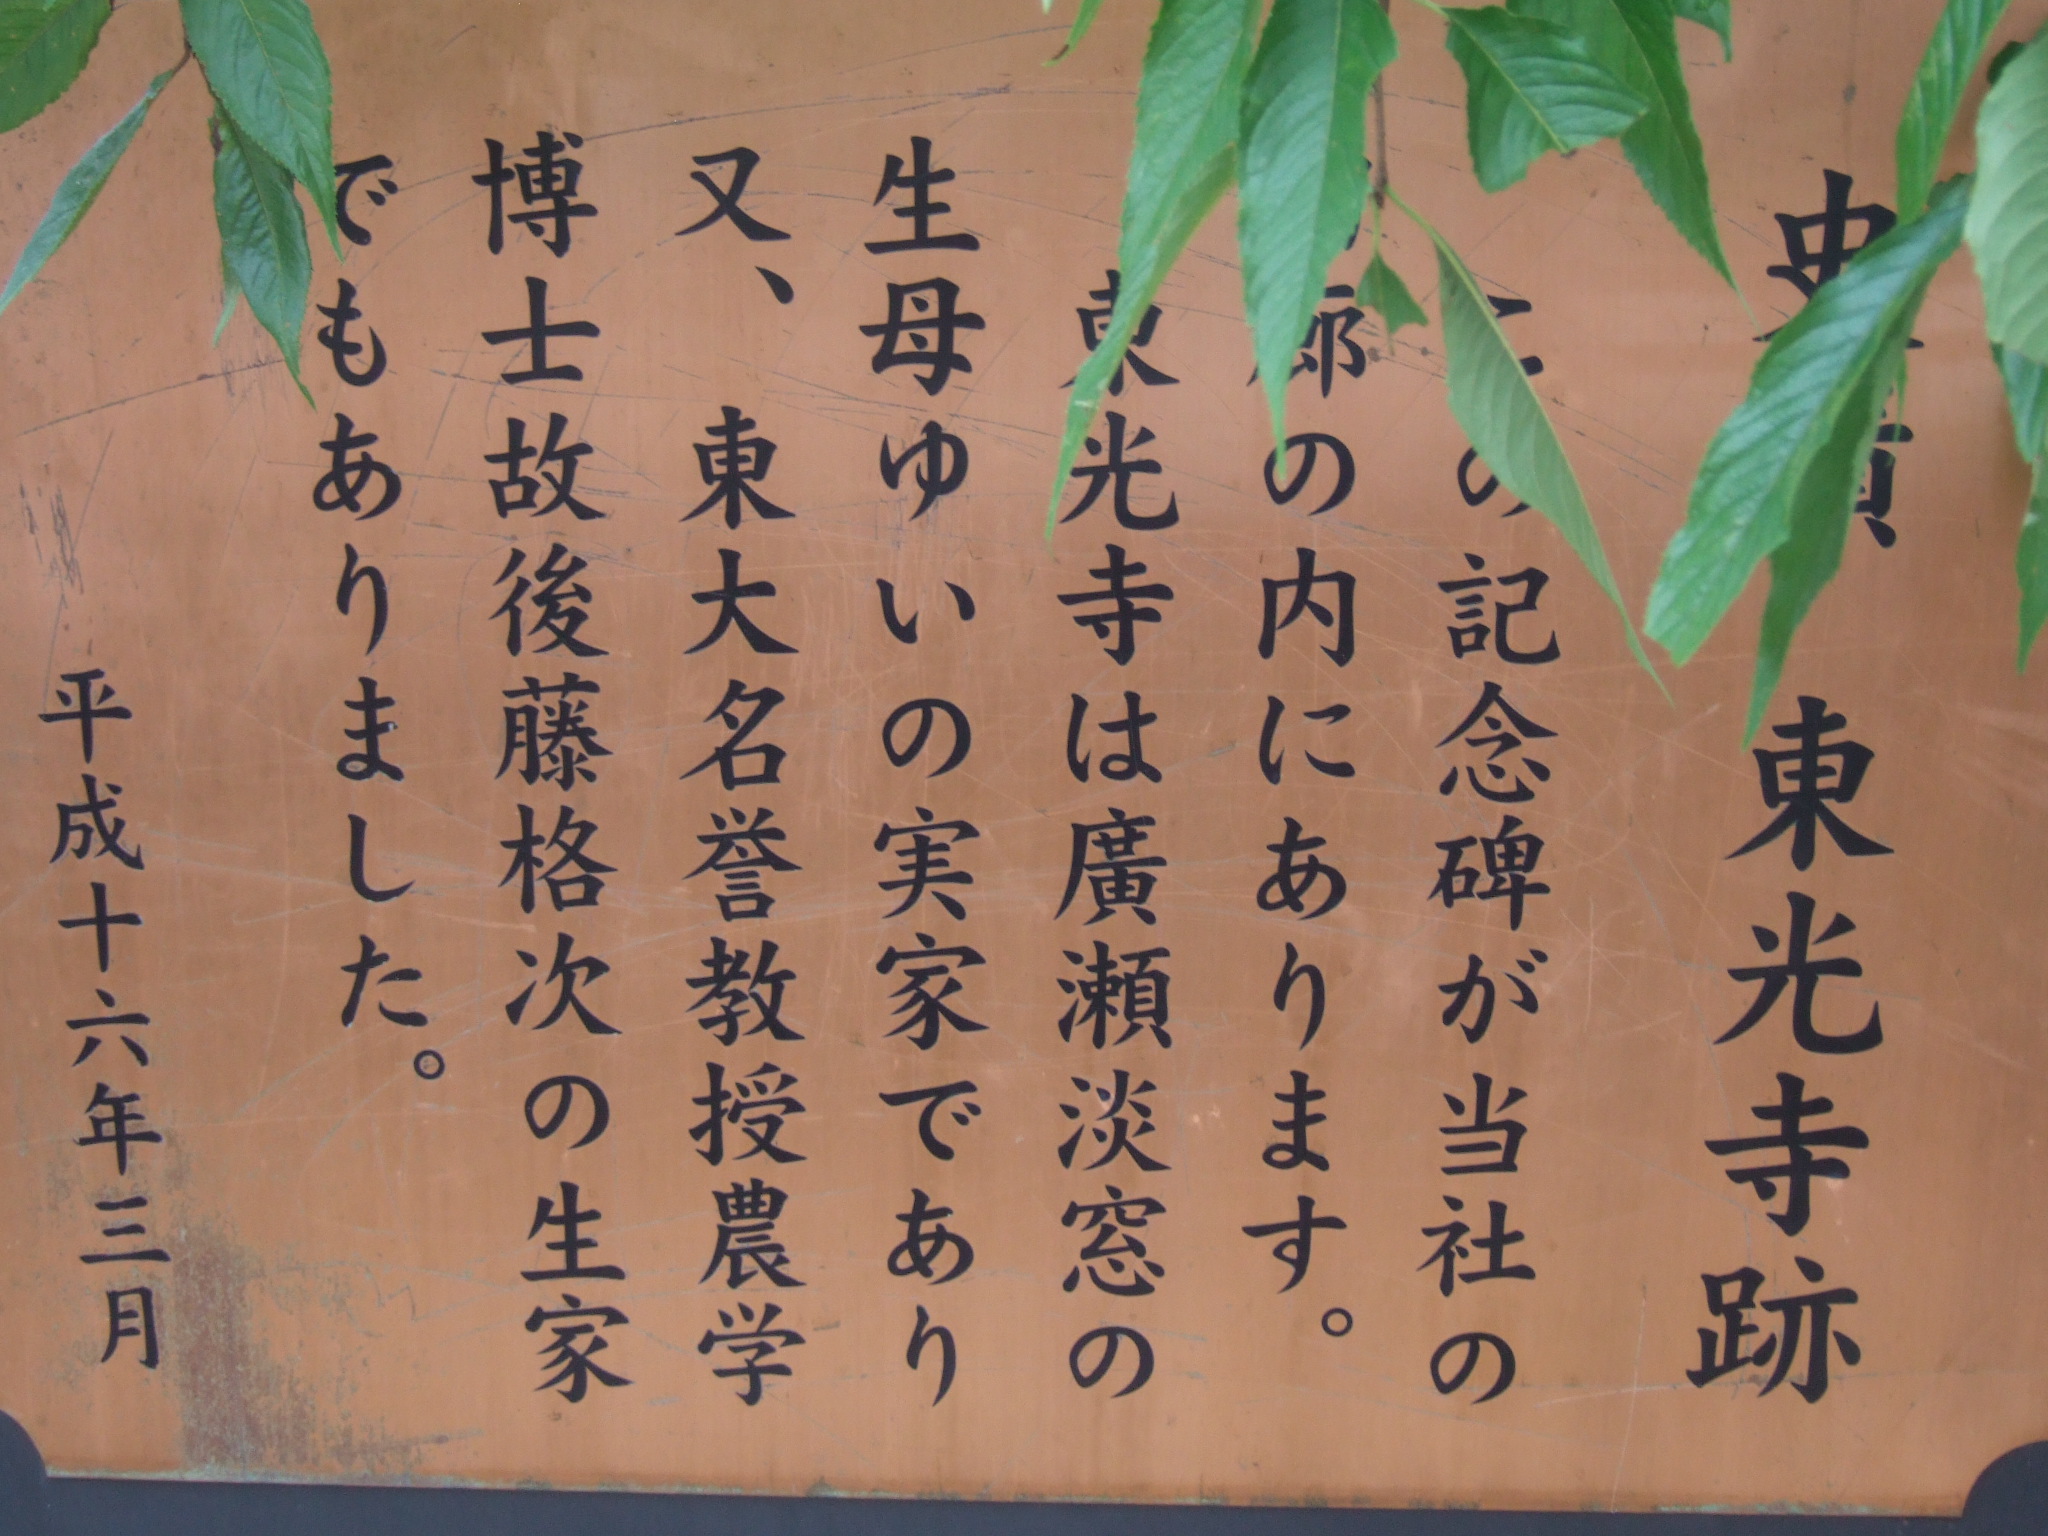 史蹟 東光寺跡
この記念碑が当社の
廊の内にあります。
東光寺は廣瀬淡窓の
生母ゆいの実家であり
又、東大名誉教授農学
博士故後藤格次の生家
でもありました。
平成十六年三月